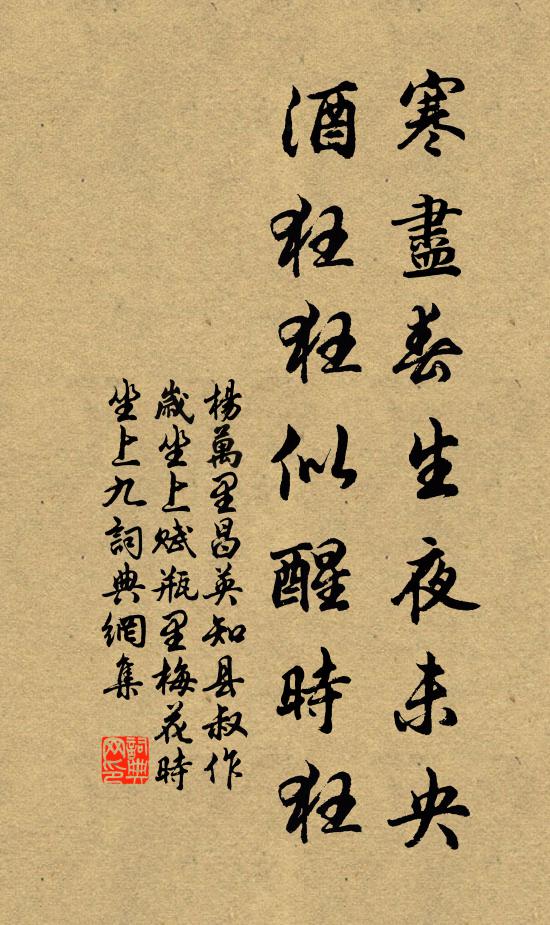 寒盡春生夜未央
酒狂狂似醒時狂
楊萬里昌英知县叔作
歲坐上賦瓶里梅花時
坐上九詞典網集
詞典
网印